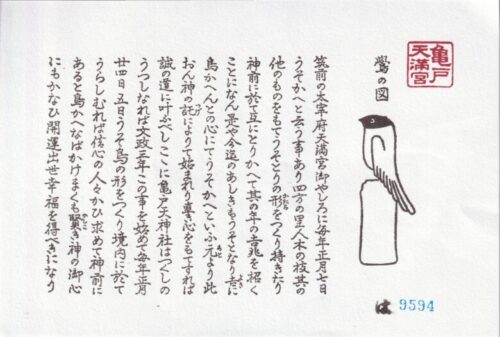 亀戸
天満宮
鷽の図
筑前の太宰府天満宮御やしろに毎年正月七日
うそかへと云う事あり四方の里人木の枝其の
他のものをもてうそどりの形をつくり持きたり
神前に於て互にとりかへて其の年の吉兆を招く
ことになん是や今迄のあしきもうそとなり吉に
鳥かへんとの心にてうそかへといふ元より此
おん神の託によりて始まれり 心をもてすれば
誠の道に叶ふべしこゝに亀戸天神社はつくしの
うつしなれば文政三年この事を始めて毎年正月
廿四五日うそ鳥の形をつくり境内に於て
うらしむれば信心の人々かひ求めて神前に
あると鳥かへなばかけまくも賢き神の御心
にもかなひ開運出世幸福を得べきになり
は 9594